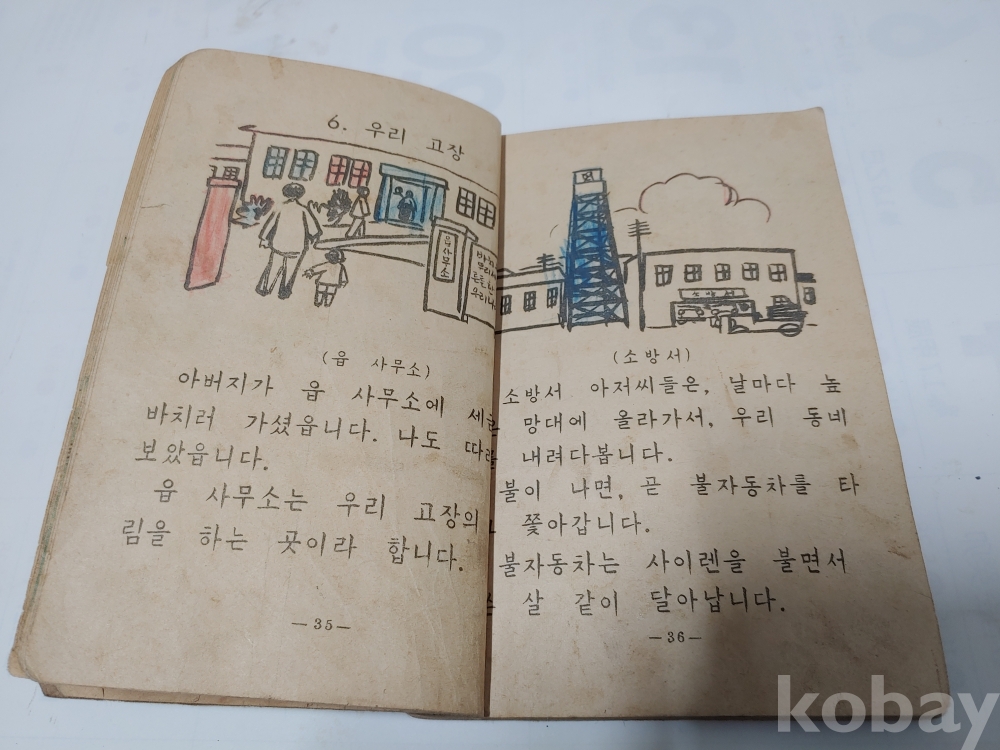 6. 우리 고장
읍사무소
(읍 사무소)
아버지가 읍 사무소에
바치러 가셨읍니다. 나도
보았읍니다.
읍 사무소는 우리 고장의
림을 하는 곳이라 합니다.
—35—
소방서
(소방서)
소방서 아저씨들은, 날마다 높
망대에 올라가서, 우리 동네
내려다봅니다.
불이 나면, 곧 불자동차를 타
쫓아갑니다.
불자동차는 사이렌을 불면서
살 같이 달아납니다.
—36—
kobay